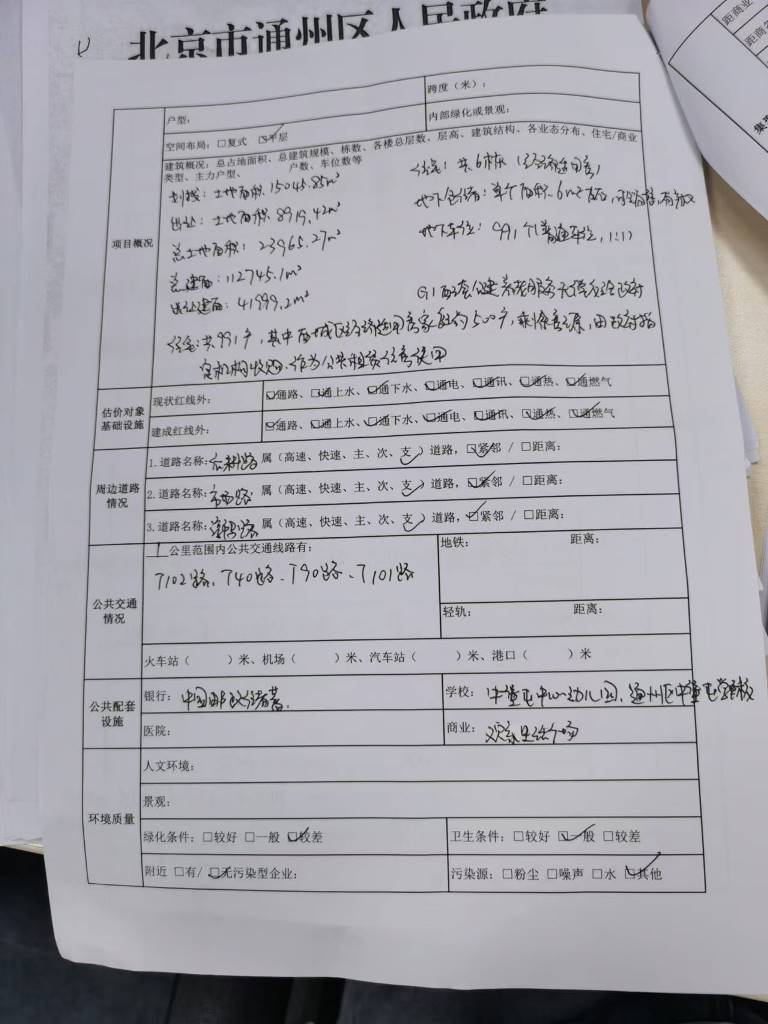 北京市通州区人民政府
距商业
户型：
跨度（米）：
空间布局：□复式 ☑平层
内部绿化或景观：
建筑概况：总占地面积、总建筑规模、栋数、各楼总层数、层高、建筑结构、各业态分布、住宅/商业
类型、主力户型、 户数、车位数等
项目概况
划拨：土地面积 15045.85m²
出让：土地面积 8919.42m²
总土地面积：23965.27m²
总建面：112745.1m²
出让建面：41999.2m²
住宅：共6栋（经济适用房）
地下仓储：单个面积 6m²
地下车位：991个普通车位，1:1
G1配套公建
住宅：共991户，其中西城区经济适用房家庭约500户，剩余房源，由政府指
定机构收购，作为公共租赁住房使用
估价对象
基础设施
现状红线外：
☑通路、☑通上水、☑通下水、☑通电、☑通讯、□通热、☑通燃气
建成红线外：
☑通路、☑通上水、☑通下水、☑通电、☑通讯、☑通热、☑通燃气
周边道路
情况
1.道路名称： 属（高速、快速、主、次、支）道路，☑紧邻 / □距离：
2.道路名称：市场路 属（高速、快速、主、次、支）道路，☑紧邻 / □距离：
3.道路名称： 属（高速、快速、主、次、支）道路，☑紧邻 / □距离：
公共交通
情况
1公里范围内公共交通线路有：
T102路、T40路、T90路、T101路
地铁： 距离：
轻轨： 距离：
火车站（ ）米、机场（ ）米、汽车站（ ）米、港口（ ）米
公共配套
设施
银行：中国邮政储蓄
学校：牛堡屯中心幼儿园、通州区牛堡屯学校
医院：
商业：
环境质量
人文环境：
景观：
绿化条件：□较好 □一般 ☑较差
卫生条件：□较好 ☑一般 □较差
附近 □有/ ☑无污染型企业：
污染源：□粉尘 □噪声 □水 ☑其他